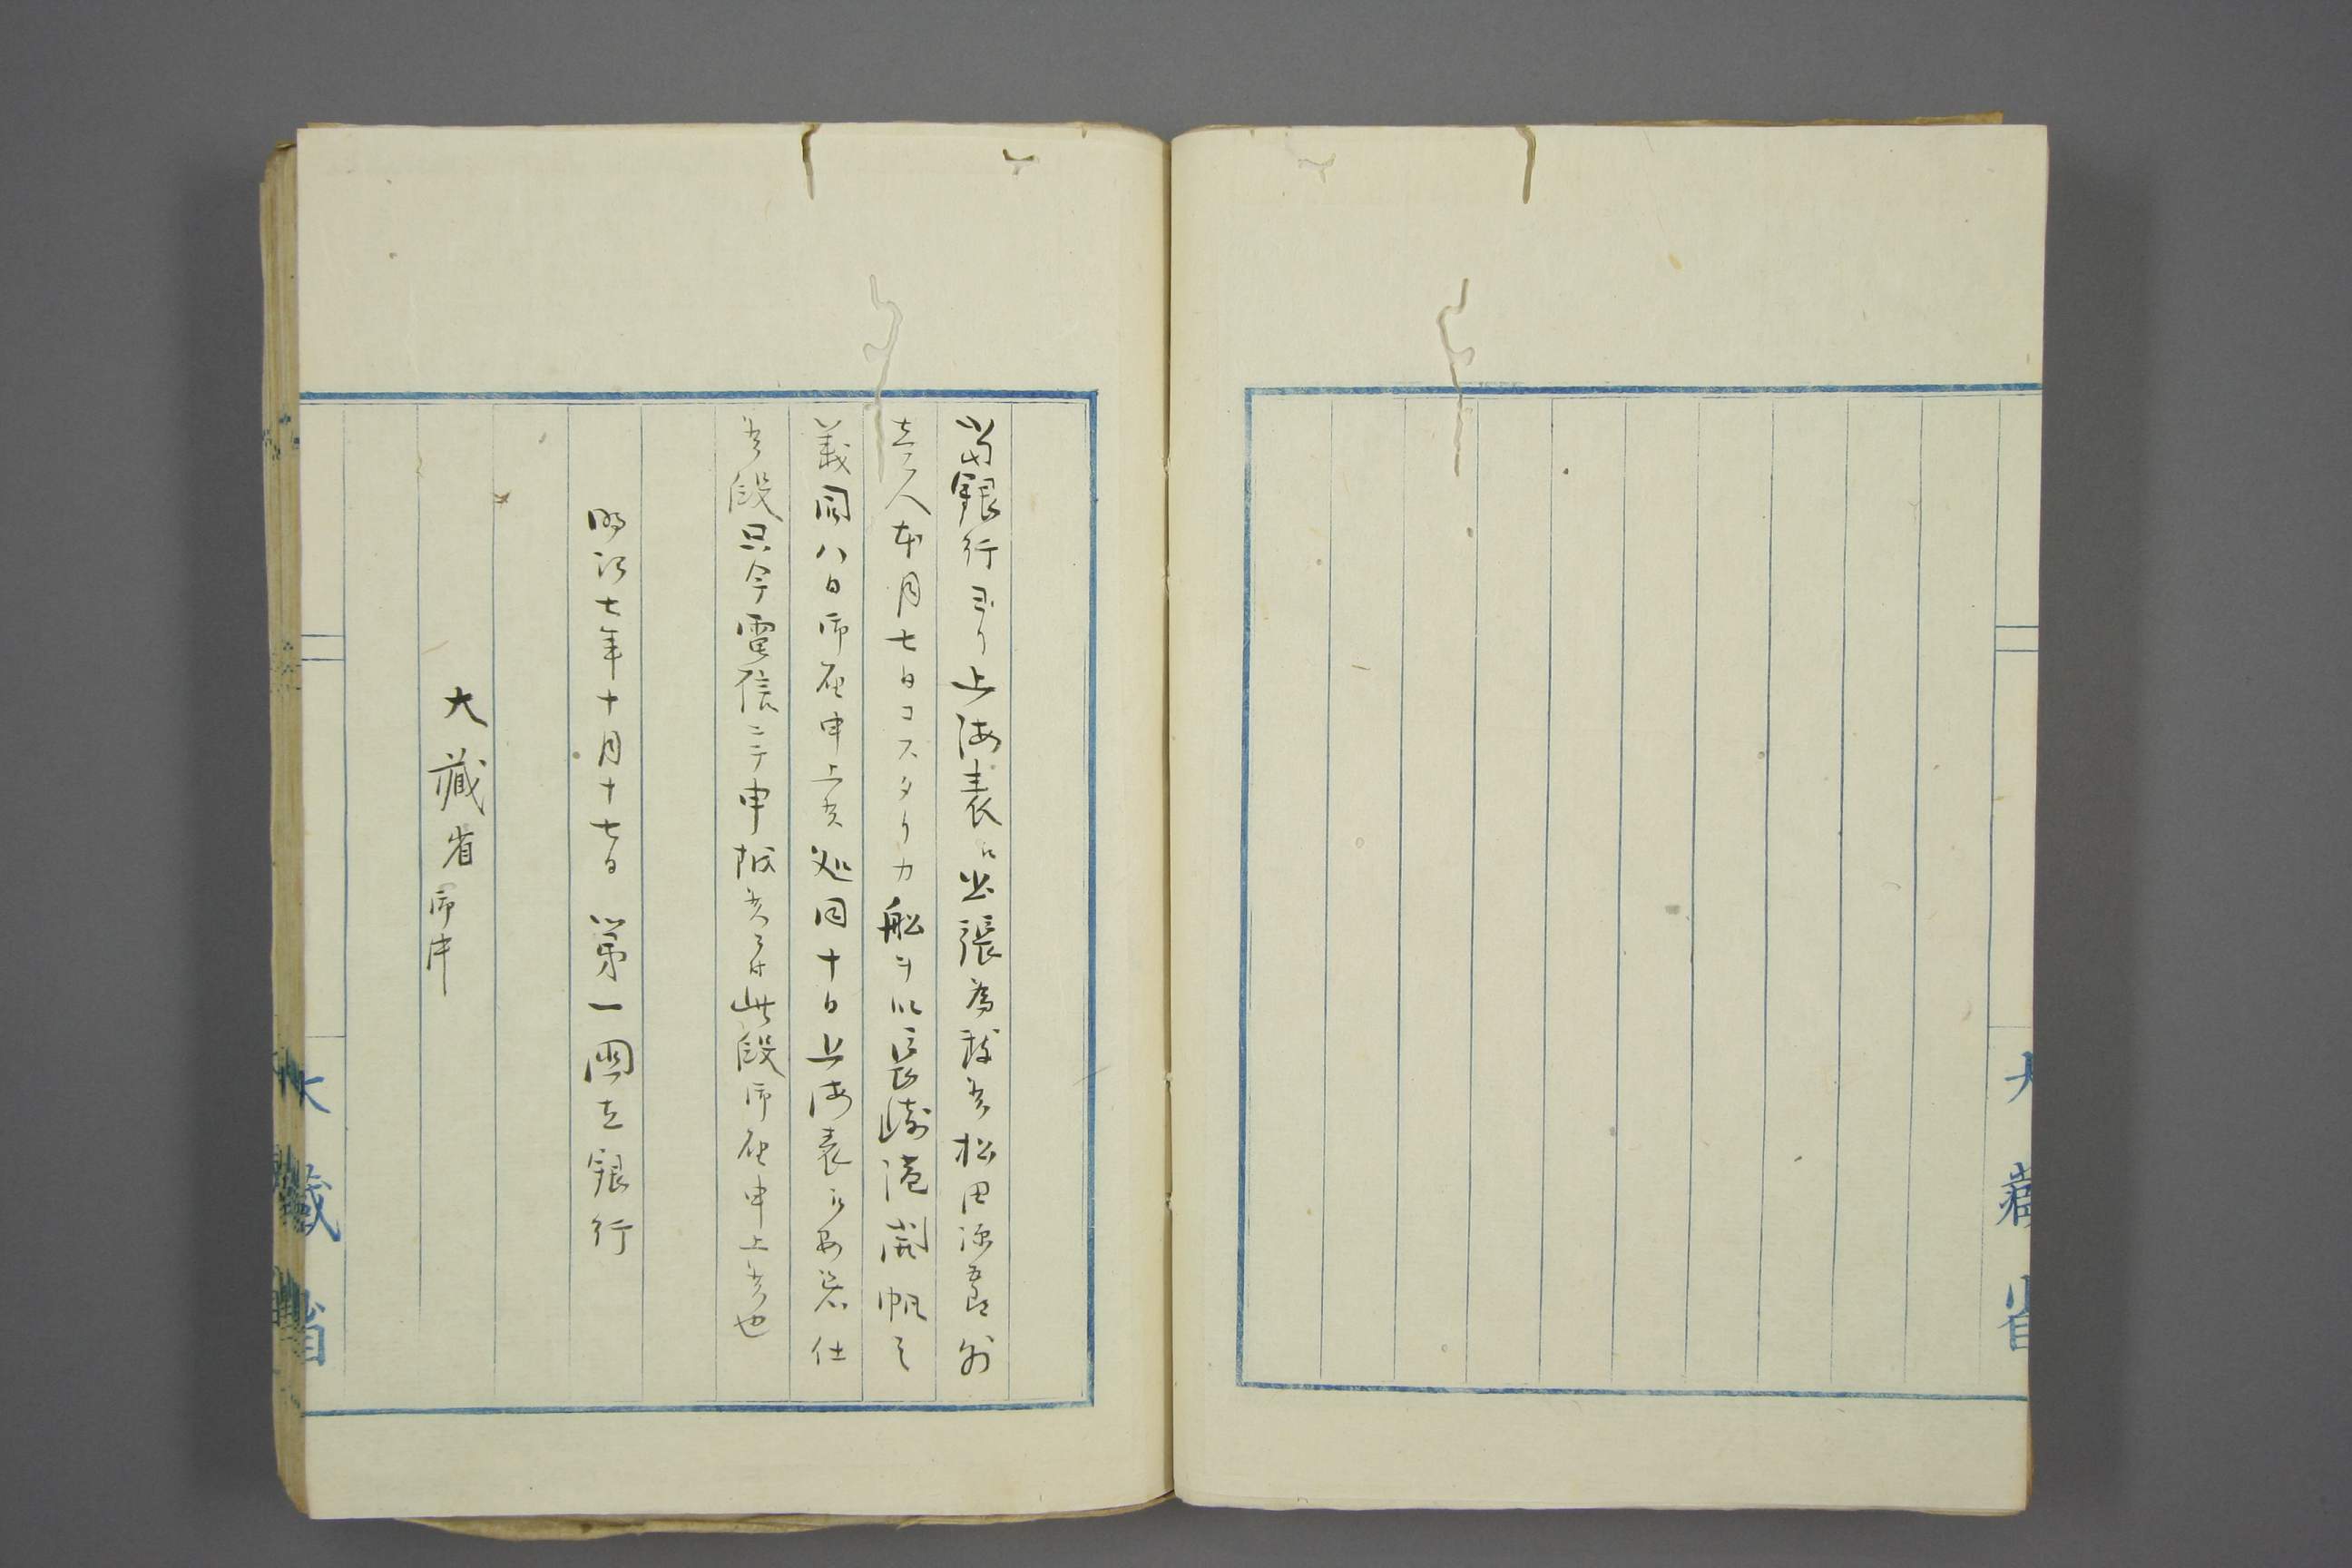 大藏省
當銀行ヨリ上海表ヘ出張為致候松田源五郎外
壱人本月七日コスタリカ船ヲ以長崎港開帆之
義同八日御届申上候処同十日上海表ヘ安着仕
候段只今電信ニテ申越候ニ付此段御届申上候也
明治七年十月十七日 第一國立銀行
大藏省御中
大藏省